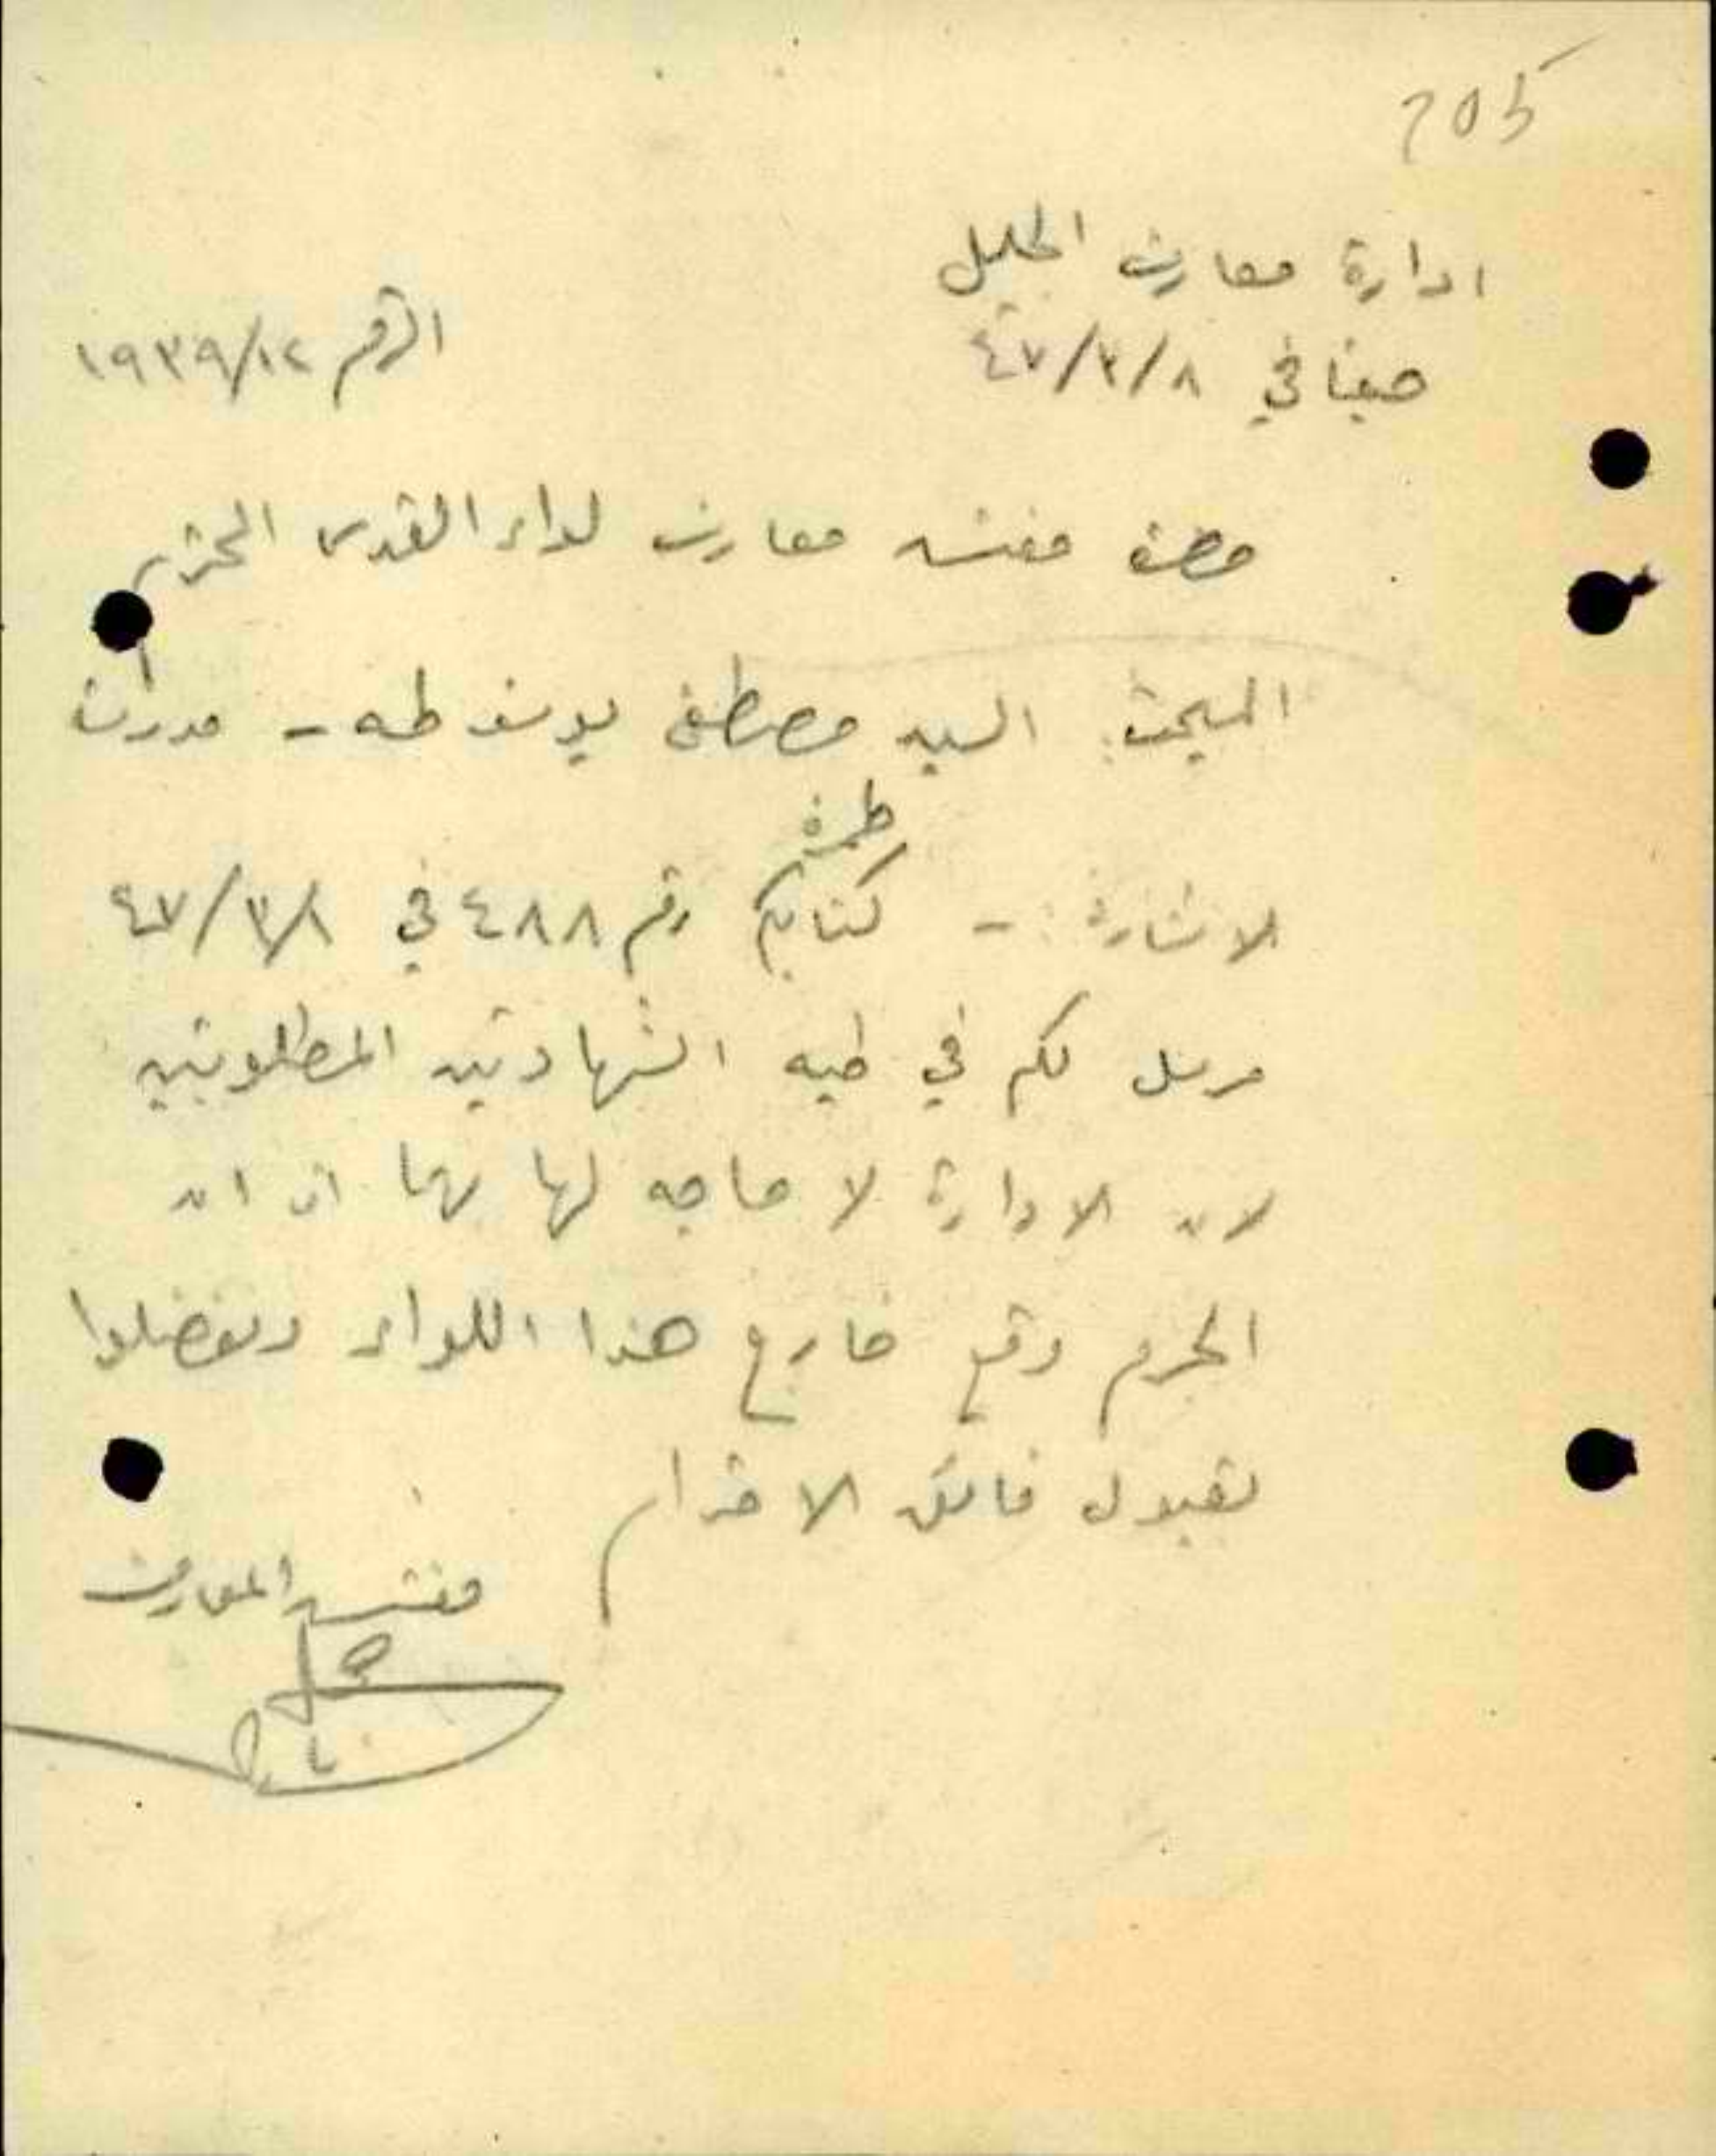 205
ادارة معارف الجليل
صيفا في ٤٧/٣/٨
الرقم ١٩٣٩/١٢
حضرة مفتش معارف لواء القدس المحترم
المبحث: السيد مصطفى يوسف طه -
طمرة
الاشارة :- كتابكم رقم ٤٨٨ في ٤٧/٣/٨
مرسل لكم في طيه الشهادتين المطلوبتين
لان الادارة لا حاجه لها بهما اذ ان
الجرم وقع خارج هذا اللواء وتفضلوا
بقبول فائق الاحترام
مفتش المعارف